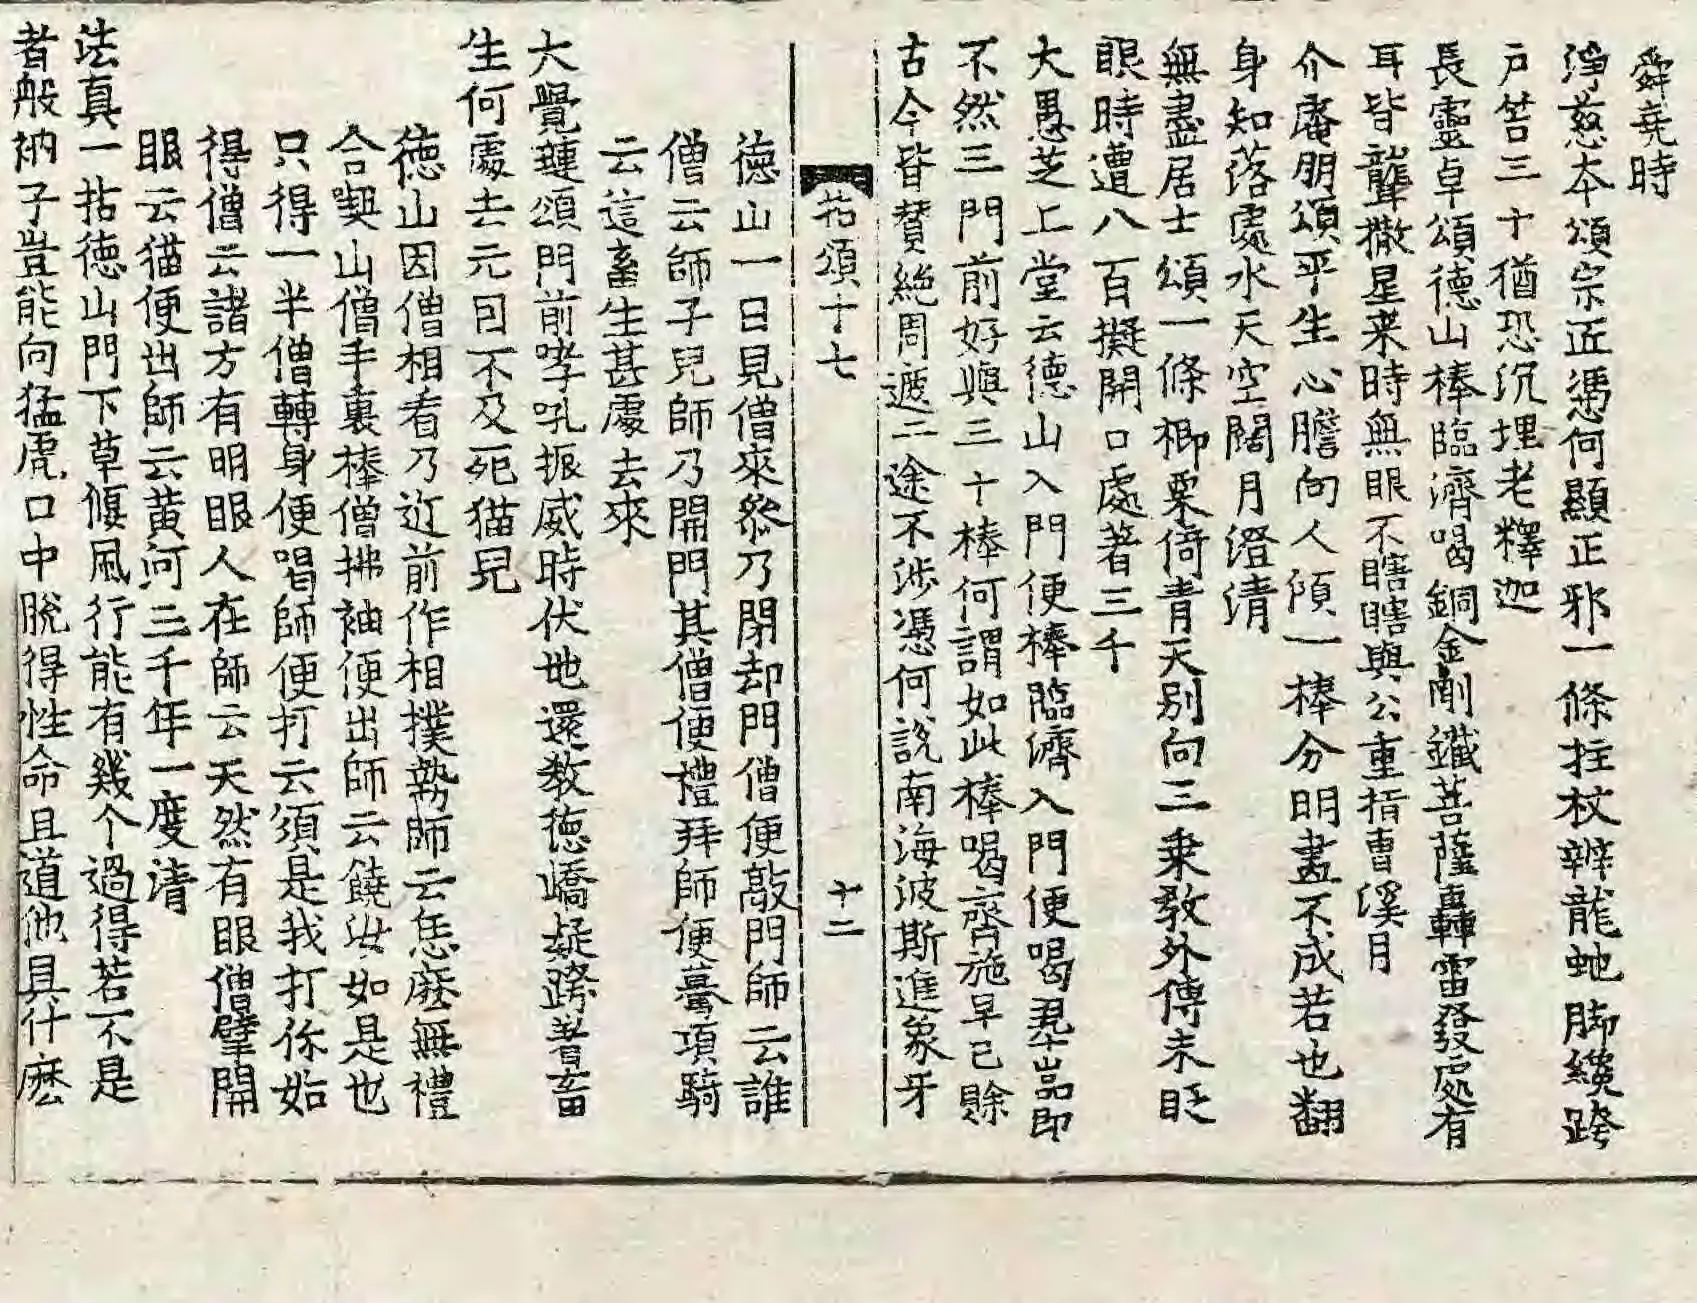 舜堯時
淨慈本頌宗匠憑何顯正邪一條拄杖辨龍虵脚纔跨
戸荅三十猶恐沉埋老釋迦
長靈卓頌德山棒臨濟喝銅金剛鐵菩薩轟雷發處有
耳皆聾撒星来時無眼不瞎瞎與公重指曹溪月
介庵朋頌平生心膽向人傾一棒分明盡不成若也翻
身知落處水天空闊月澄清
無盡居士頌一條楖栗倚青天别向三乗教外傳未眨
眼時遭八百擬開口處著三千
大愚芝上堂云德山入門便棒臨濟入門便喝巖即
不然三門前好與三十棒何謂如此棒喝齊施早已賒
古今皆賛絶周遮二途不涉憑何說南海波斯進象牙
拈頌十七 十二
德山一日見僧來叅乃閉却門僧便敲門師云誰
僧云師子兒師乃開門其僧便禮拜師便驀項騎
云這畜生甚處去來
大覺璉頌門前哮吼振威時伏地還教德嶠疑跨著畜
生何處去元囙不及死猫兒
德山因僧相看乃近前作相撲勢師云恁麽無禮
合喫山僧手裏棒僧拂袖便出師云饒汝如是也
只得一半僧轉身便喝師便打云須是我打你始
得僧云諸方有明眼人在師云天然有眼僧擘開
眼云猫便出師云黄河三千年一度清
法真一拈徳山門下草偃風行能有幾个過得若不是
者般衲子豈能向猛虎口中脫得性命且道他具什麽